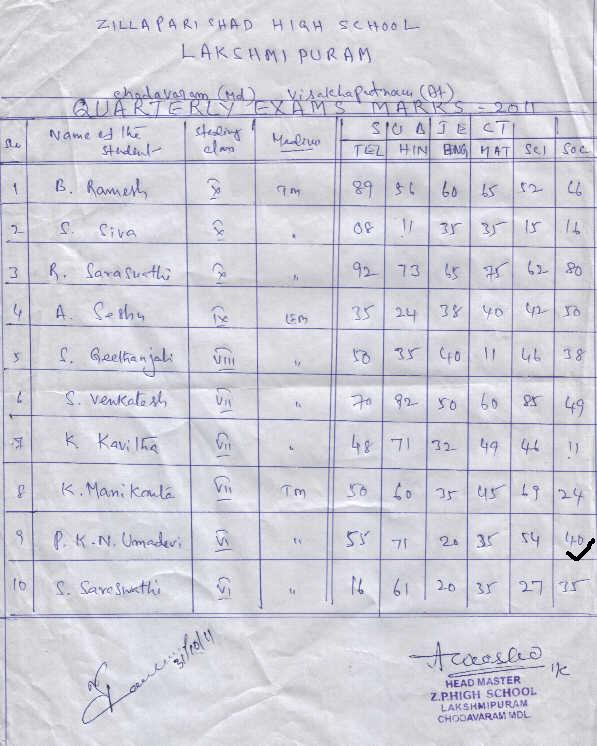 ZILLAPARISHAD HIGH SCHOOL
LAKSHMIPURAM
Chodavaram (Md) Visakhapatnam (Dt)
QUARTERLY EXAMS MARKS - 2011
Name of the student Studing class Medium SUBJECT
TEL HIN ENG MAT SCI SOC
1 B. Ramesh X TM 89 56 60 65 52 66
2 S. Siva X " 08 11 35 35 15 16
3 R. Saraswathi X " 92 73 65 75 62 80
4 A. Seshu IX EM 35 24 38 40 42 50
5 S. Geethanjali VIII " 50 35 40 11 46 38
6 S. Venkatesh VII " 70 92 50 60 85 49
7 K Kavitha VII " 48 71 32 49 46 11
8 K. Manikanta VII TM 50 60 35 45 69 24
9 P. K. N. Umadevi VI " 55 71 20 35 54 40
10 S. Saraswathi VI " 16 61 20 35 27 35
HEAD MASTER
Z.P.HIGH SCHOOL
LAKSHMIPURAM
CHODAVARAM MDL.